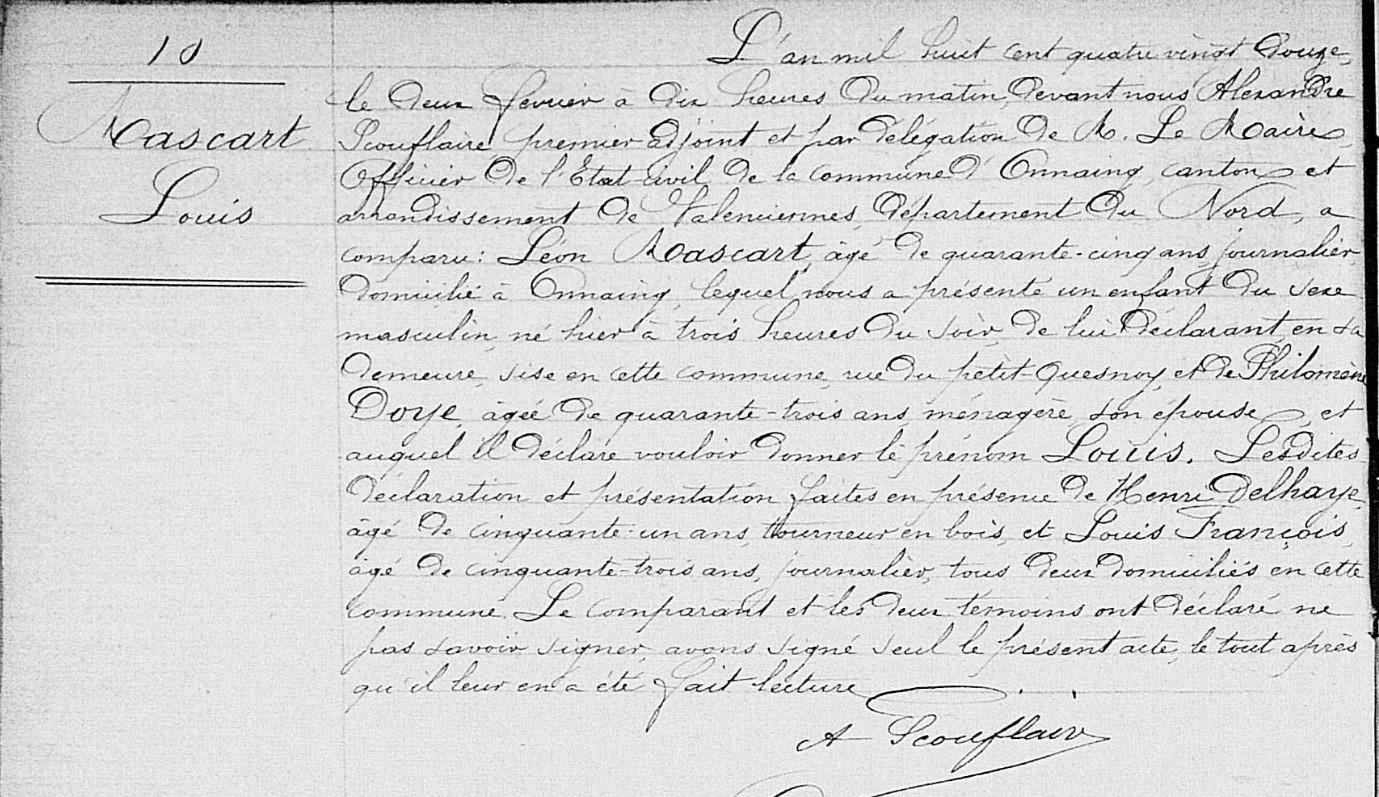 10
Mascart
Louis
L'an mil huit cent quatre vingt douze,
le deux février à dix heures du matin, devant nous Alexandre
Scouflaire premier adjoint et par délégation de M. Le Maire,
Officier de l'Etat-civil de la commune d'Onnaing, canton et
arrondissement de Valenciennes, département du Nord, a
comparu: Léon Mascart, âgé de quarante-cinq ans, journalier
domicilié à Onnaing, lequel nous a présenté un enfant du sexe
masculin, né hier à trois heures du soir, de lui déclarant, en sa
demeure, sise en cette commune, rue du petit-Quesnoy, et de Philomène
Doye, âgée de quarante-trois ans, ménagère, son épouse, et
auquel il déclare vouloir donner le prénom Louis. Lesdites
déclaration et présentation faites en présence de Henri Delhaye,
âgé de cinquante-un ans, tourneur en bois, et Louis François,
âgé de cinquante-trois ans, journalier, tous deux domiciliés en cette
commune. Le comparant et les deux témoins ont déclaré ne
pas savoir signer, avons signé seul le présent acte, le tout après
qu'il leur en a été fait lecture
A Scouflaire